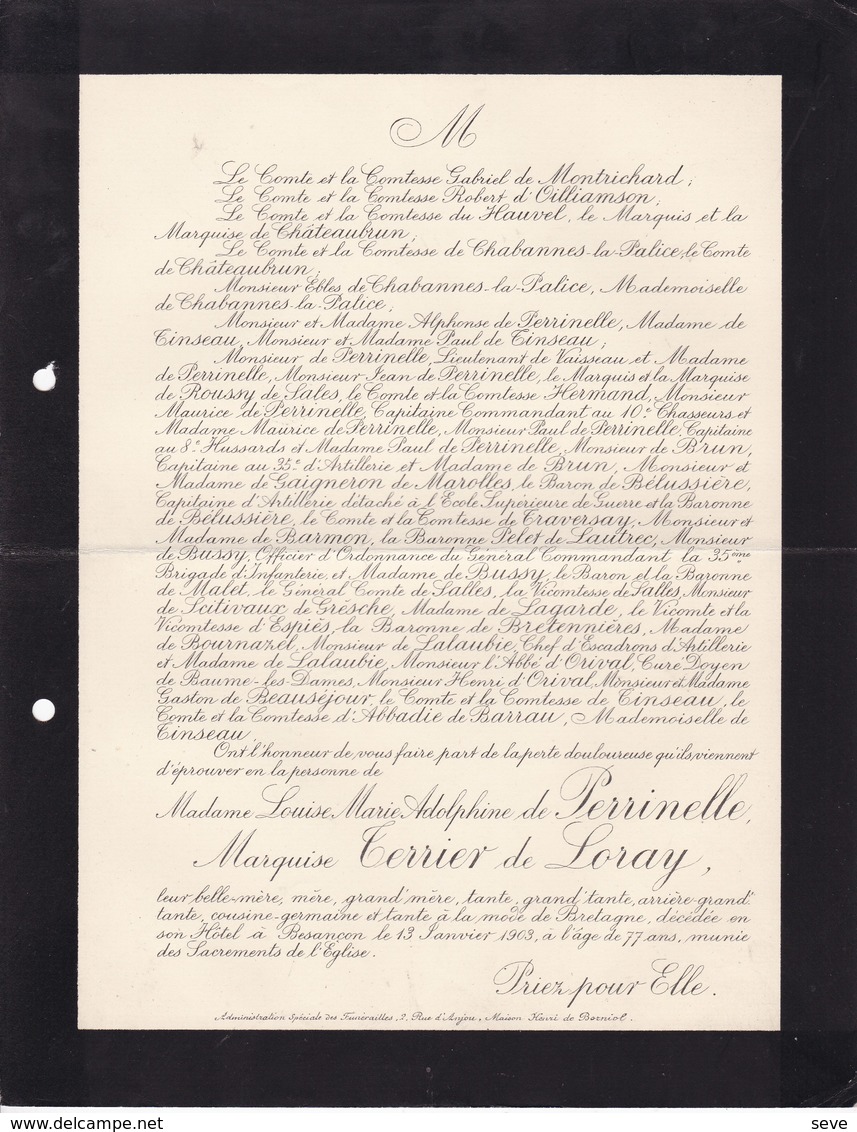 M
Le Comte et la Comtesse Gabriel de Montrichard ;
Le Comte et la Comtesse Robert d'Oilliamson ;
Le Comte et la Comtesse du Hauvel, le Marquis et la
Marquise de Châteaubrun ;
Le Comte et la Comtesse de Chabannes-la-Palice, le Comte
de Châteaubrun ;
Monsieur Ebles de Chabannes-la-Palice, Mademoiselle
de Chabannes-la-Palice ;
Monsieur et Madame Alphonse de Perrinelle, Madame de
Tinseau, Monsieur et Madame Paul de Tinseau ;
Monsieur de Perrinelle, Lieutenant de Vaisseau et Madame
de Perrinelle, Monsieur Jean de Perrinelle, le Marquis et la Marquise
de Roussy de Sales, le Comte et la Comtesse Hermand, Monsieur
Maurice de Perrinelle, Capitaine Commandant au 10e Chasseurs et
Madame Maurice de Perrinelle, Monsieur Paul de Perrinelle, Capitaine
au 8e Hussards et Madame Paul de Perrinelle, Monsieur de Brun,
Capitaine au 35e d'Artillerie et Madame de Brun, Monsieur et
Madame de Gaigneron de Marolles, le Baron de Bélussière,
Capitaine d'Artillerie détaché à l'Ecole Supérieure de Guerre et la Baronne
de Bélussière, le Comte et la Comtesse de Traversay, Monsieur et
Madame de Barmon, la Baronne Pelet de Lautrec, Monsieur
de Bussy, Officier d'Ordonnance du Général Commandant la 35ème
Brigade d'Infanterie, et Madame de Bussy, le Baron et la Baronne
de Malet, le Général Comte de Salles, la Vicomtesse de Salles, Monsieur
de Scitivaux de Greische, Madame de Lagarde, le Vicomte et la
Vicomtesse d'Espiés, la Baronne de Bretennières, Madame
de Bournazel, Monsieur de Lalaubie, Chef d'Escadrons d'Artillerie
et Madame de Lalaubie, Monsieur l'Abbé d'Orival, Curé Doyen
de Baume-les-Dames, Monsieur Henri d'Orival, Monsieur et Madame
Gaston de Beauséjour, le Comte et la Comtesse de Tinseau, le
Comte et la Comtesse d'Abbadie de Barrau, Mademoiselle de
Tinseau,
Ont l'honneur de vous faire part de la perte douloureuse qu'ils viennent
d'éprouver en la personne de
Madame Louise Marie Adolphine de Perrinelle,
Marquise Terrier de Loray,
leur belle-mère, mère, grand'mère, tante, grand'tante, arrière-grand'
tante, cousine-germaine et tante à la mode de Bretagne, décédée en
son Hôtel à Besançon le 13 Janvier 1903, à l'âge de 77 ans, munie
des Sacrements de l'Eglise.
Priez pour Elle.
Administration Spéciale des Funérailles, 2, Rue d'Anjou, Maison Henri de Borniol.
seve